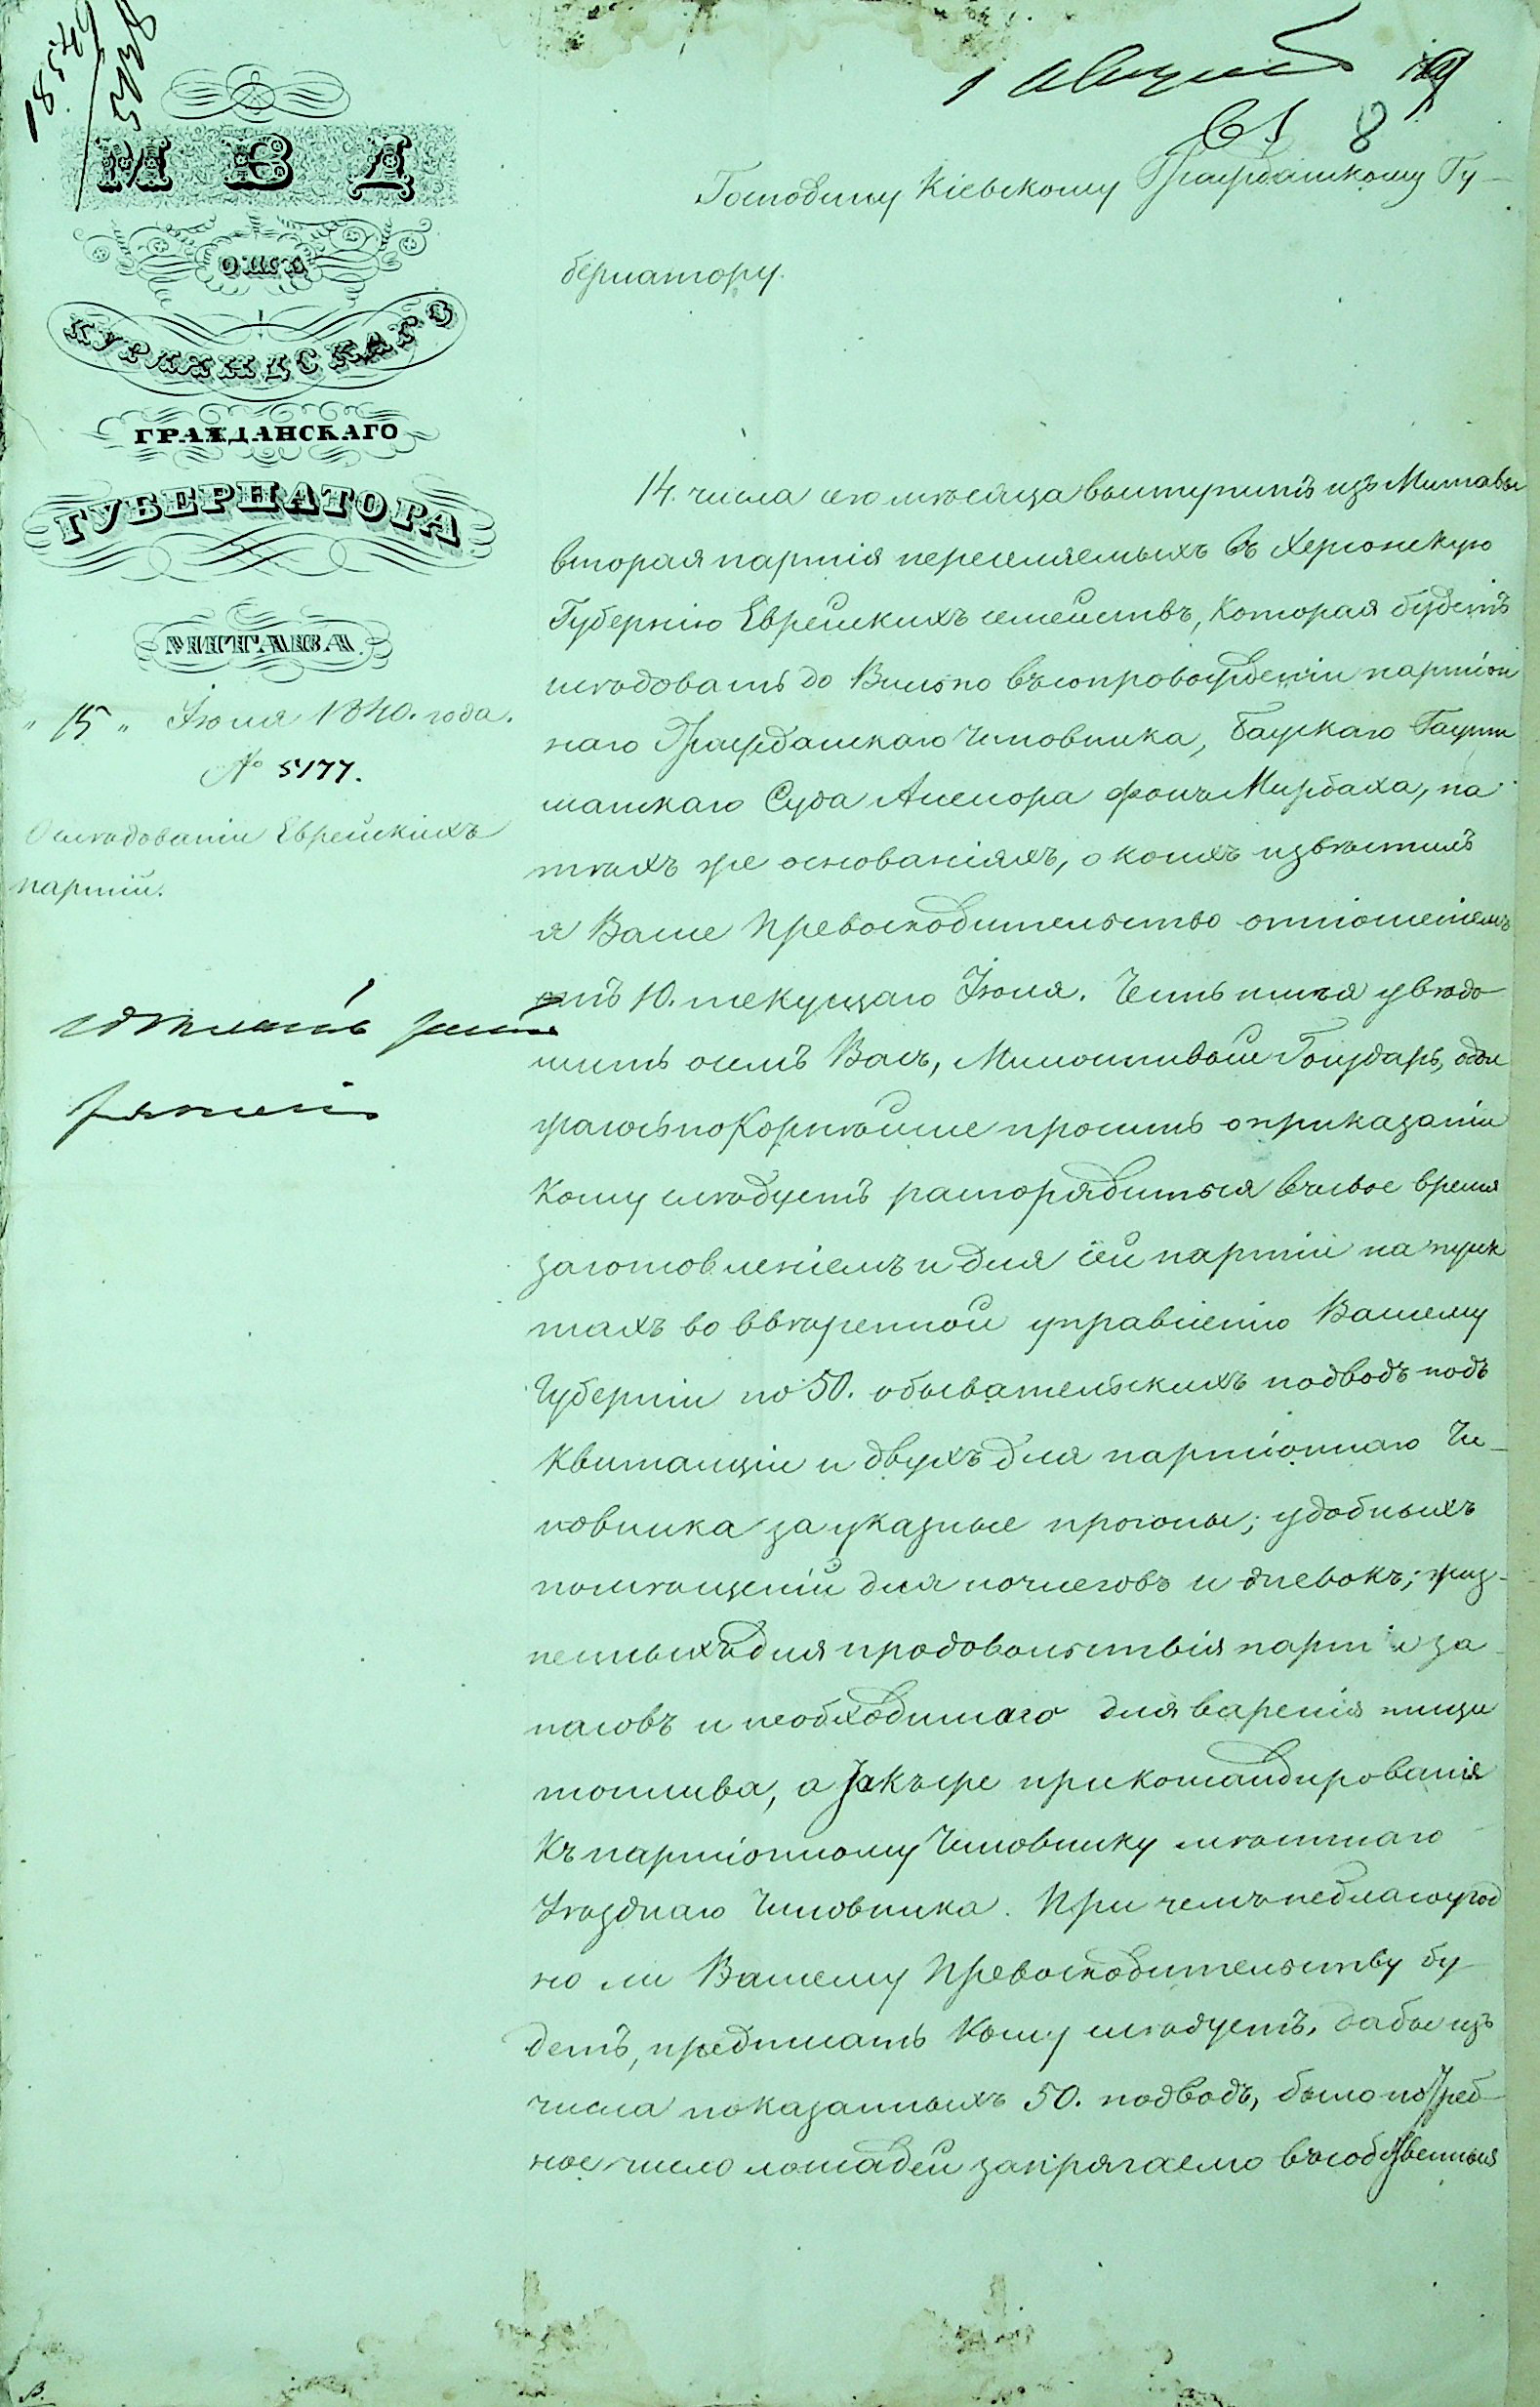 1 Август
61 8
Господину Кіевскому Гражданскому Гу-
бернатору.
М В Д
ОТЪ
КУРЛЯНДСКАГО
ГРАЖДАНСКАГО
ГУБЕРНАТОРА
МИТАВА.
" 15 " Іюля 1840. года.
№ 5177.
О слѣдованіи Еврейскихъ
партій.
14. числа сего мѣсяца выступитъ изъ Митавы
вторая партія переселяемыхъ въ Херсонскую
Губернію Еврейскихъ семействъ, которая будетъ
слѣдовать до Вильно въ сопровожденіи партіон
наго Гражданскаго Чиновника, Баускаго Гаупт
манскаго Суда Ассесора фонъ Мирбаха, на
тѣхъ же основаніяхъ, о коихъ извѣстилъ
я Ваше Превосходительство отношеніемъ
отъ 10. текущаго Іюля. Честь имѣя увѣдо
мить о семъ Васъ, Милостивый Государь, дол
гомъ покорнѣйше просить о приказаніи
кому слѣдуетъ распорядиться въ свое время
заготовленіемъ и для сей партіи на пунк
тахъ во ввѣренной управленію Вашему
Губерніи по 50. обывательскихъ подводъ подъ
квитанціи и двухъ для партіоннаго Чи-
новника за указные прогоны; удобныхъ
помѣщеній для ночлеговъ и дневокъ; жиз-
ненныхъ для продовольствія партіи за-
пасовъ и необходимаго для варенія пищи
топлива, а также прикомандированія
къ партіонному Чиновнику мѣстнаго
Уѣзднаго Чиновника. При чемъ неблагоугод
но ли Вашему Превосходительству бу-
детъ, предписать кому слѣдуетъ, дабы изъ
числа показанныхъ 50. подводъ, было потреб-
ное число лошадей запрягаемо въ собственныя